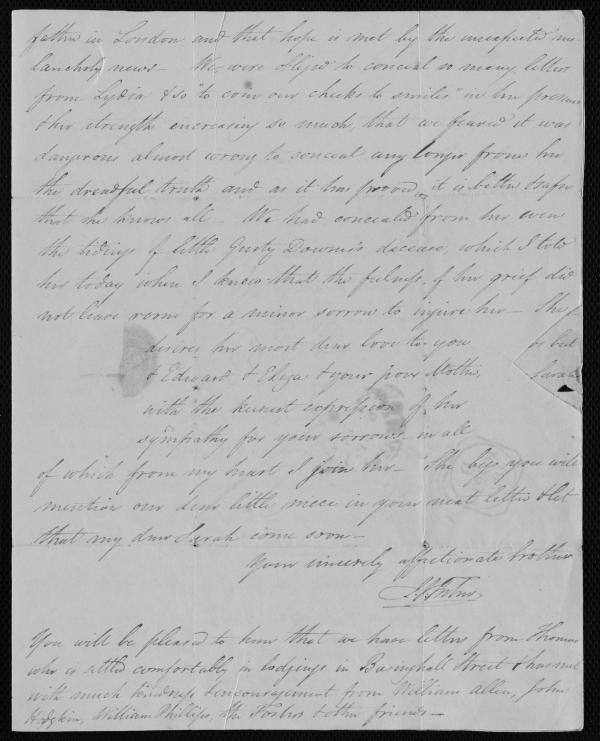 father in London and that hope is met by the unexpected me-
lancholy news – We were obliged to conceal so many letters
from Lydia & so "to coin our cheeks to smiles" in her presence
& her strength encreasing so much, that we feared it was
dangerous almost wrong to conceal any longer from her
the dreadful truth and as it has proved, it is better & safer
that she knows all – We had concealed from her even
the tidings of little Gurly Downes's decease, which I told
her today when I knew that the fulness of her grief did
not leave room for a minor sorrow to injure her – She
desires her most dear love to you
or but
& Edward & Eliza & your poor Mother,
Sarah
with the kindest expression of her
sympathy for your sorrows – in all
of which from my heart I join her – She begs you will
mention our dear little niece in your next letter & let
that my dear Sarah come soon –
Your sincerely affectionate brother
You will be pleased to hear that we have letters from Thomas
who is settled comfortably in lodgings in Basinghall Street & has met
with much kindness & encouragement from William Allen, John
Hodgkin, William Phillips, the Forsters & other friends –